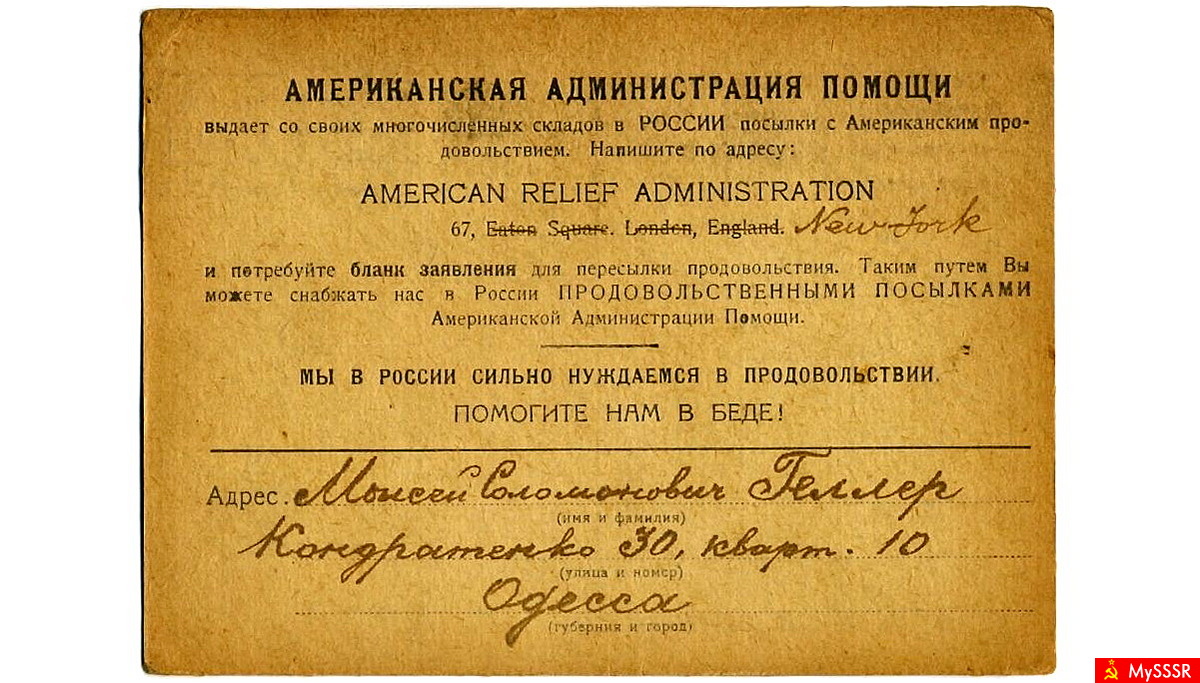 АМЕРИКАНСКАЯ АДМИНИСТРАЦИЯ ПОМОЩИ
выдает со своих многочисленных складов в РОССИИ посылки с Американским про-
довольствием. Напишите по адресу:
AMERICAN RELIEF ADMINISTRATION
67, Eaton Square. London, England. New-York
и потребуйте бланк заявления для пересылки продовольствия. Таким путем Вы
можете снабжать нас в России ПРОДОВОЛЬСТВЕННЫМИ ПОСЫЛКАМИ
Американской Администрации Помощи.
МЫ В РОССИИ СИЛЬНО НУЖДАЕМСЯ В ПРОДОВОЛЬСТВИИ.
ПОМОГИТЕ НАМ В БЕДЕ!
Адрес. Моисей Соломонович Геллер
(имя и фамилия)
Кондратенко 30, кварт. 10
(улица и номер)
Одесса
(губерния и город)
MySSSR